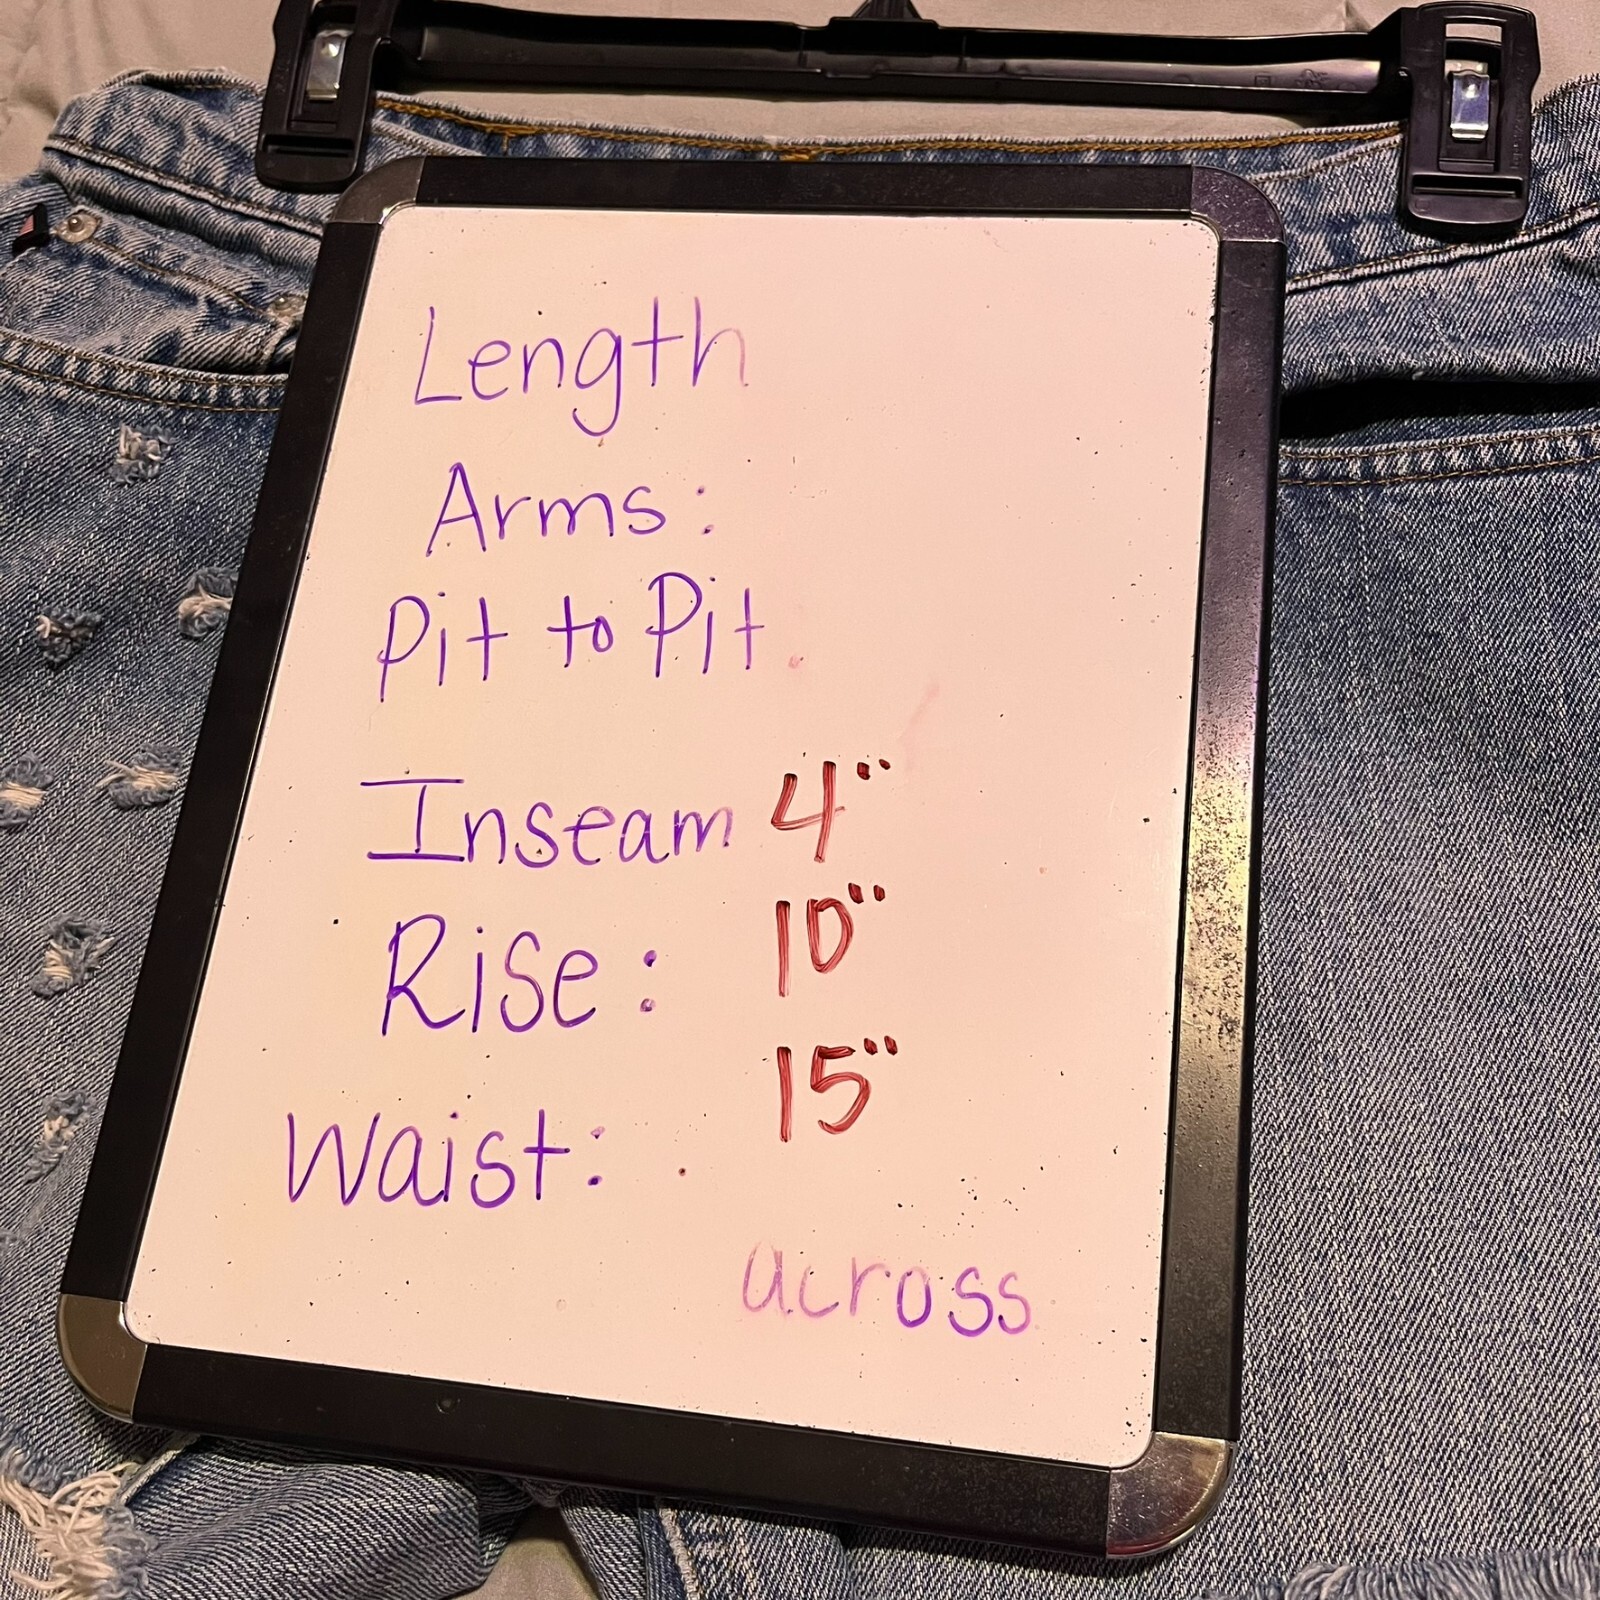 Length
Arms:
Pit to Pit.
Inseam 4"
Rise: 10"
Waist: 15"
across